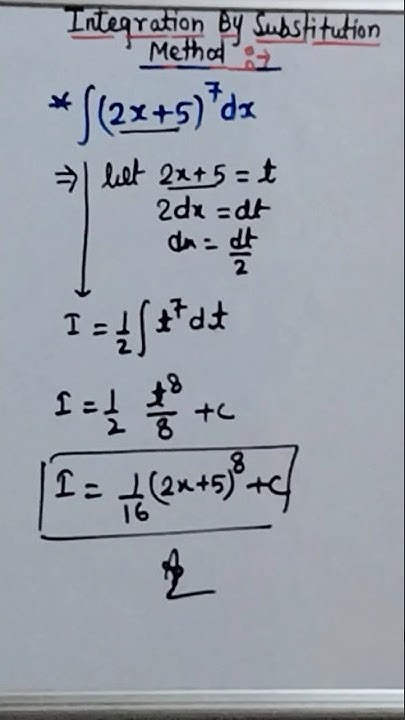 Integration By Substitution
Method :→
* ∫(2x+5)⁷dx
⇒ let 2x+5 = t
2dx = dt
dx = dt/2
I = 1/2 ∫t⁷dt
I = 1/2 t⁸/8 + c
I = 1/16 (2x+5)⁸ + c